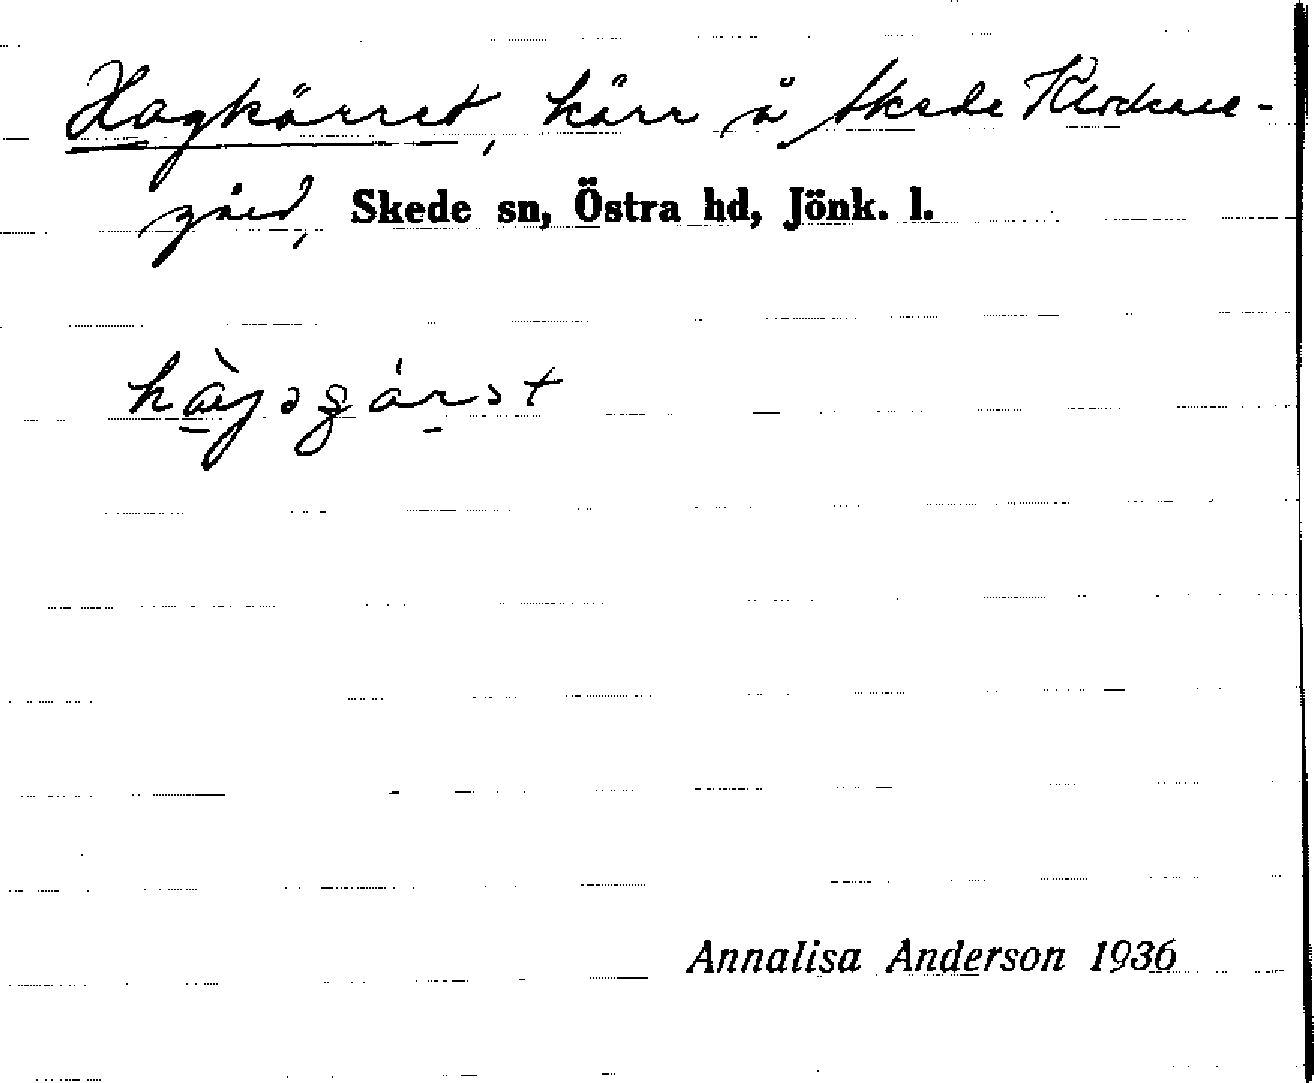 Hagkärret, kärr å Skede Klockare-
gård, Skede sn, Östra hd, Jönk. l.
Annalisa Anderson 1936